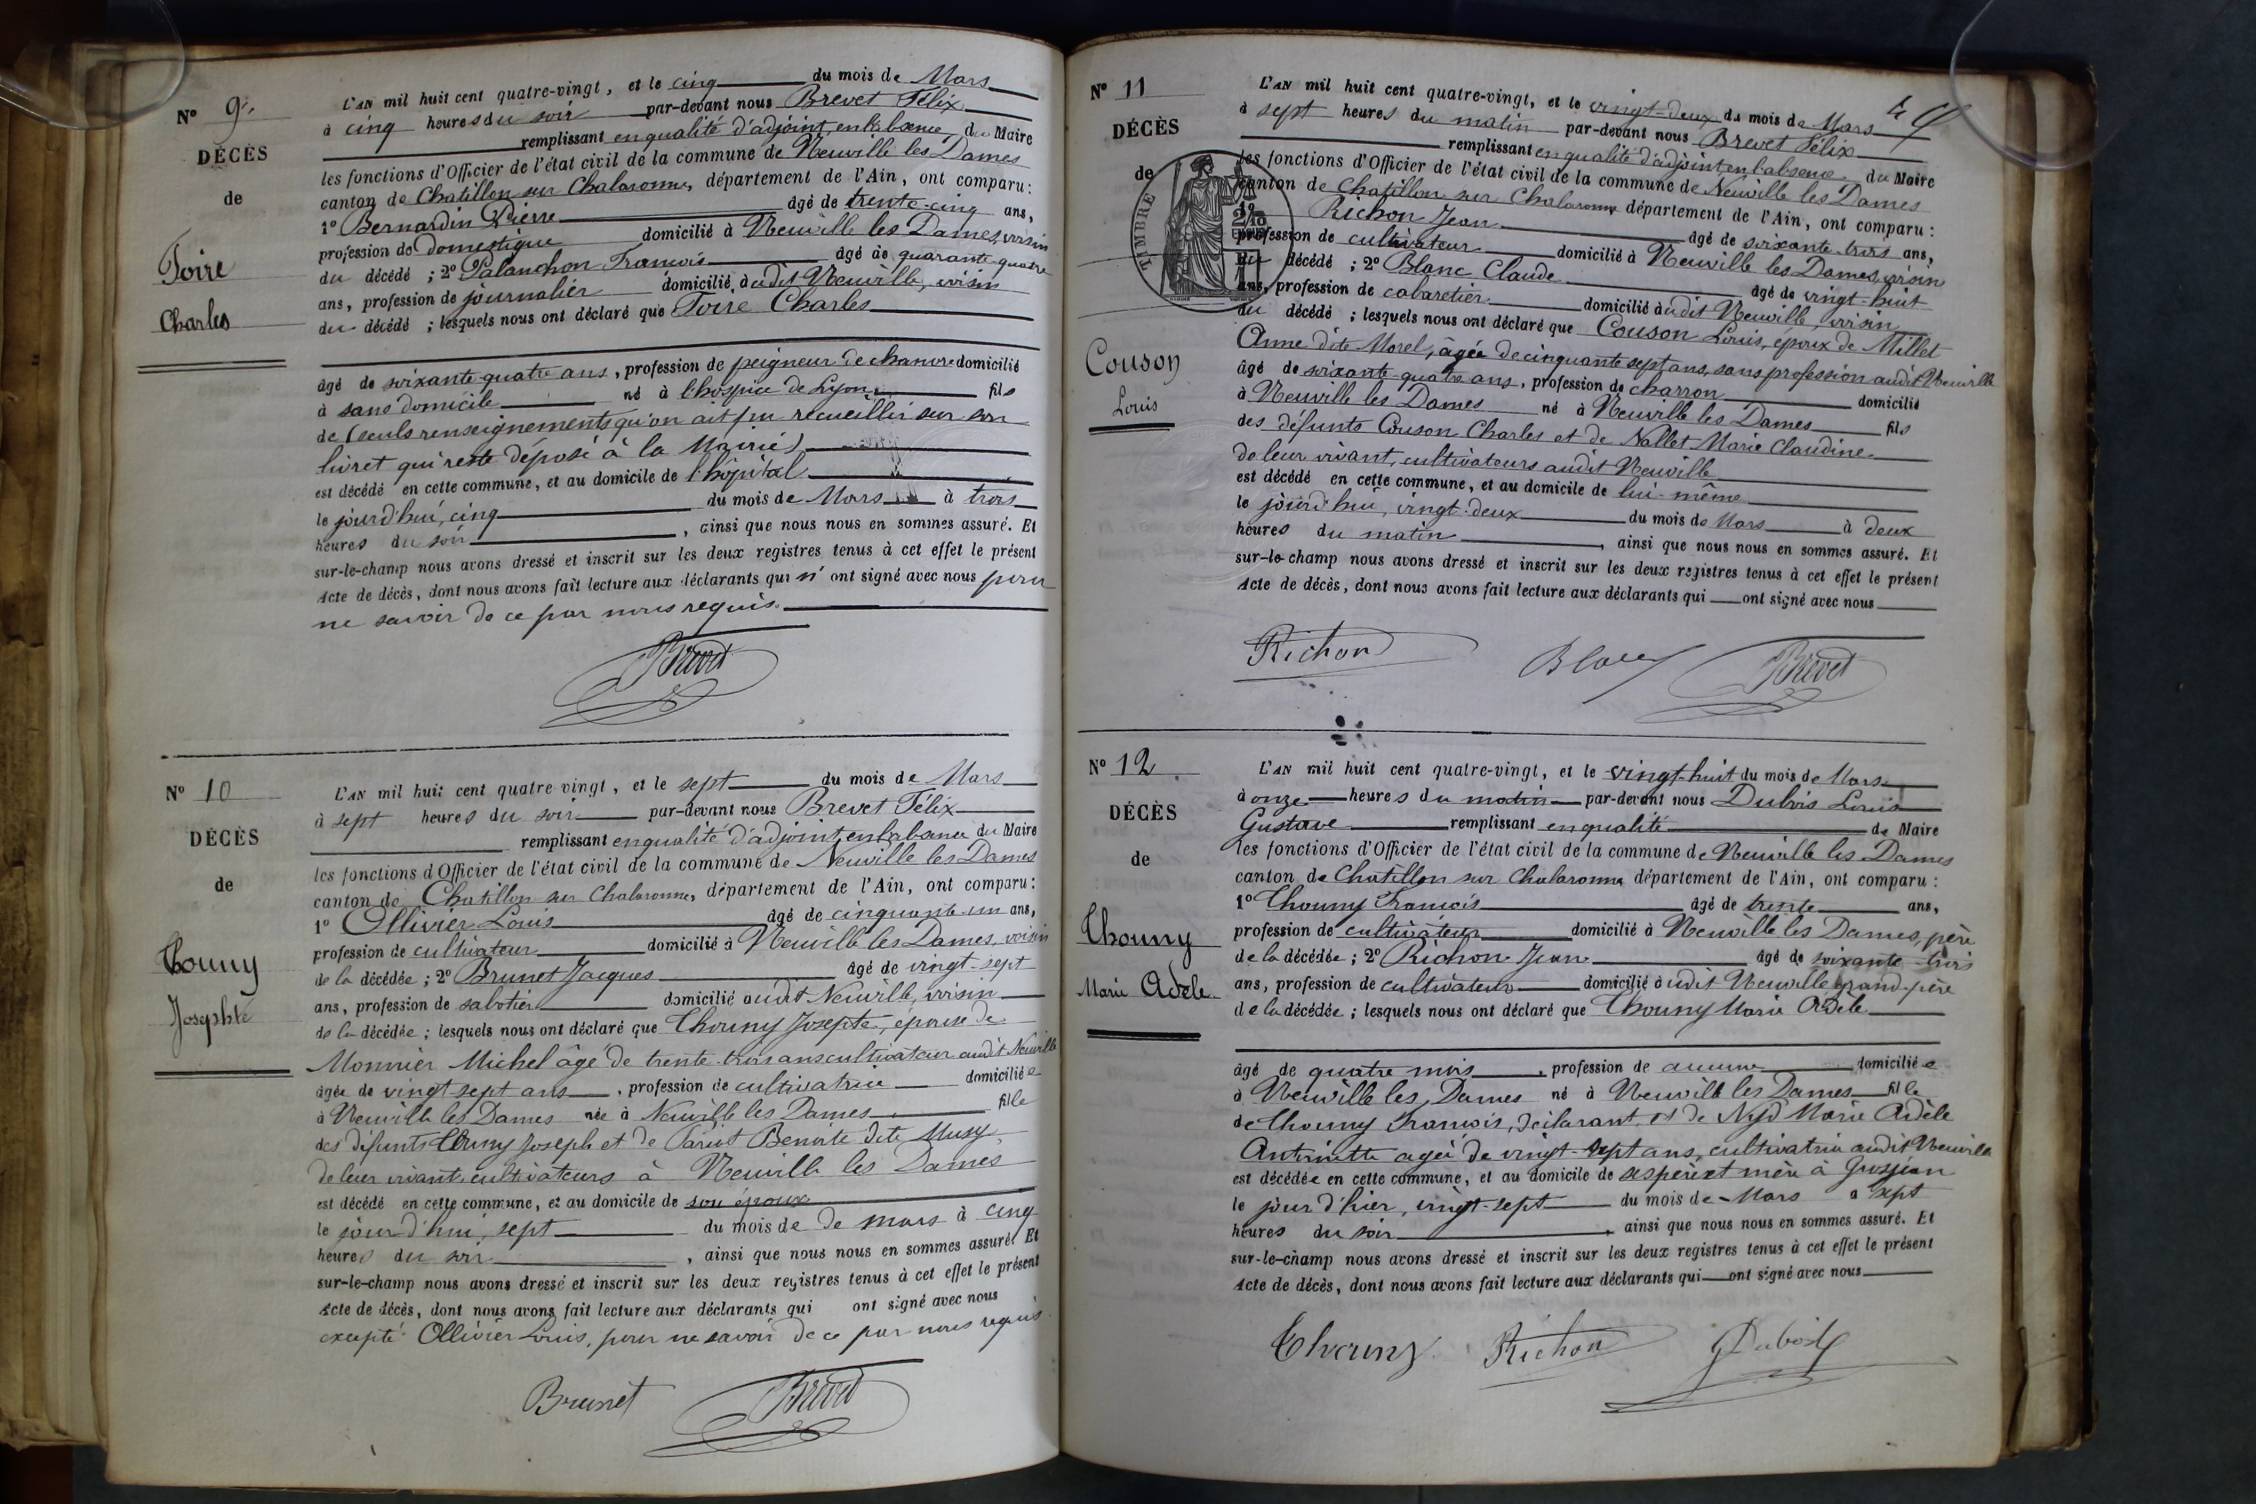 N° 9.
DÉCÈS
de
Foire
Charles
L'AN mil huit cent quatre-vingt, et le cinq du mois de Mars
à cinq heures du soir par-devant nous Brevet Félix
remplissant en qualité d'adjoint, en l'absence du Maire
les fonctions d'Officier de l'état civil de la commune de Neuville les Dames
canton de Chatillon sur Chalaronne, département de l'Ain, ont comparu :
1° Bernardin Pierre âgé de trente-cinq ans,
profession de domestique domicilié à Neuville les Dames, voisin
du décédé ; 2° Palanchon François âgé de quarante quatre
ans, profession de journalier domicilié audit Neuville, voisin
du décédé ; lesquels nous ont déclaré que Foire Charles
âgé de soixante quatre ans, profession de peigneur de chanvre domicilié
à sans domicile né à l'hospice de Lyon fils
de (seuls renseignements qu'on ait pu recueillir sur son
livret qui reste déposé à la Mairie)
est décédé en cette commune, et au domicile de l'hôpital
le jourd'hui, cinq du mois de Mars à trois
heures du soir, ainsi que nous nous en sommes assuré. Et
sur-le-champ nous avons dressé et inscrit sur les deux registres tenus à cet effet le présent
Acte de décès, dont nous avons fait lecture aux déclarants qui n'ont signé avec nous pour
ne savoir de ce par nous requis.
Brevet
N° 10
DÉCÈS
de
Thouny
Josephte
L'AN mil huit cent quatre-vingt, et le sept du mois de Mars
à sept heures du soir par-devant nous Brevet Félix
remplissant en qualité d'adjoint, en l'absence du Maire
les fonctions d'Officier de l'état civil de la commune de Neuville les Dames
canton de Chatillon sur Chalaronne, département de l'Ain, ont comparu :
1° Ollivier Louis âgé de cinquante-un ans,
profession de cultivateur domicilié à Neuville les Dames, voisin
de la décédée ; 2° Brunet Jacques âgé de vingt-sept
ans, profession de sabotier domicilié audit Neuville, voisin
de la décédée ; lesquels nous ont déclaré que Thouny Josepte, épouse de
Monnier Michel âgé de trente-trois ans cultivateur audit Neuville
âgée de vingt-sept ans, profession de cultivatrice domiciliée
à Neuville les Dames née à Neuville les Dames fille
des défunts Thouny Joseph et de Benoite dite Musy,
de leur vivant cultivateurs à Neuville les Dames
est décédé en cette commune, et au domicile de son époux
le jourd'hui, sept du mois de de mars à cinq
heures du soir, ainsi que nous nous en sommes assuré. Et
sur-le-champ nous avons dressé et inscrit sur les deux registres tenus à cet effet le présent
Acte de décès, dont nous avons fait lecture aux déclarants qui ont signé avec nous
excepté Ollivier Louis, pour ne savoir de ce par nous requis
Brunet Brevet
N° 11
DÉCÈS
de
TIMBRE
Couson
Louis
L'AN mil huit cent quatre-vingt, et le vingt-deux du mois de Mars
à sept heures du matin par-devant nous Brevet Félix
remplissant en qualité d'adjoint en l'absence du Maire
les fonctions d'Officier de l'état civil de la commune de Neuville les Dames
canton de Chatillon sur Chalaronne département de l'Ain, ont comparu :
1° Richon Jean âgé de soixante-trois ans,
profession de cultivateur domicilié à Neuville les Dames, voisin
du décédé ; 2° Blanc Claude âgé de vingt-huit
ans, profession de cabaretier domicilié audit Neuville, voisin
du décédé ; lesquels nous ont déclaré que Couson Louis, époux de Millet
Anne dite Morel, âgée de cinquante sept ans, sans profession audit Neuville
âgé de soixante quatre ans, profession de charron domicilié
à Neuville les Dames né à Neuville les Dames fils
des défunts Couson Charles et de Nallet Marie Claudine
de leur vivant, cultivateurs audit Neuville
est décédé en cette commune, et au domicile de lui-même
le jourd'hui, vingt-deux du mois de Mars à deux
heures du matin, ainsi que nous nous en sommes assuré. Et
sur-le-champ nous avons dressé et inscrit sur les deux registres tenus à cet effet le présent
Acte de décès, dont nous avons fait lecture aux déclarants qui ont signé avec nous
Richon Blanc Brevet
N° 12
DÉCÈS
de
Thouny
Marie Adèle
L'AN mil huit cent quatre-vingt, et le vingt-huit du mois de Mars
à onze heures du matin par-devant nous Dubois Louis
Gustave remplissant en qualité de Maire
les fonctions d'Officier de l'état civil de la commune de Neuville les Dames
canton de Chatillon sur Chalaronne département de l'Ain, ont comparu :
1° Thouny François âgé de trente ans,
profession de cultivateur domicilié à Neuville les Dames, père
de la décédée ; 2° Richon Jean âgé de soixante-trois
ans, profession de cultivateur domicilié audit Neuville grand-père
de la décédée ; lesquels nous ont déclaré que Thouny Marie Adèle
âgé de quatre mois, profession de aucune domiciliée
à Neuville les Dames né à Neuville les Dames fille
de Thouny François, déclarant, et de Nyd Marie Adèle
Antoinette agée de vingt-sept ans, cultivatrice audit Neuville
est décédée en cette commune, et au domicile de ses père et mère à Grosjean
le jour d'hier, vingt-sept du mois de Mars à sept
heures du soir, ainsi que nous nous en sommes assuré. Et
sur-le-champ nous avons dressé et inscrit sur les deux registres tenus à cet effet le présent
Acte de décès, dont nous avons fait lecture aux déclarants qui ont signé avec nous
Thouny Richon